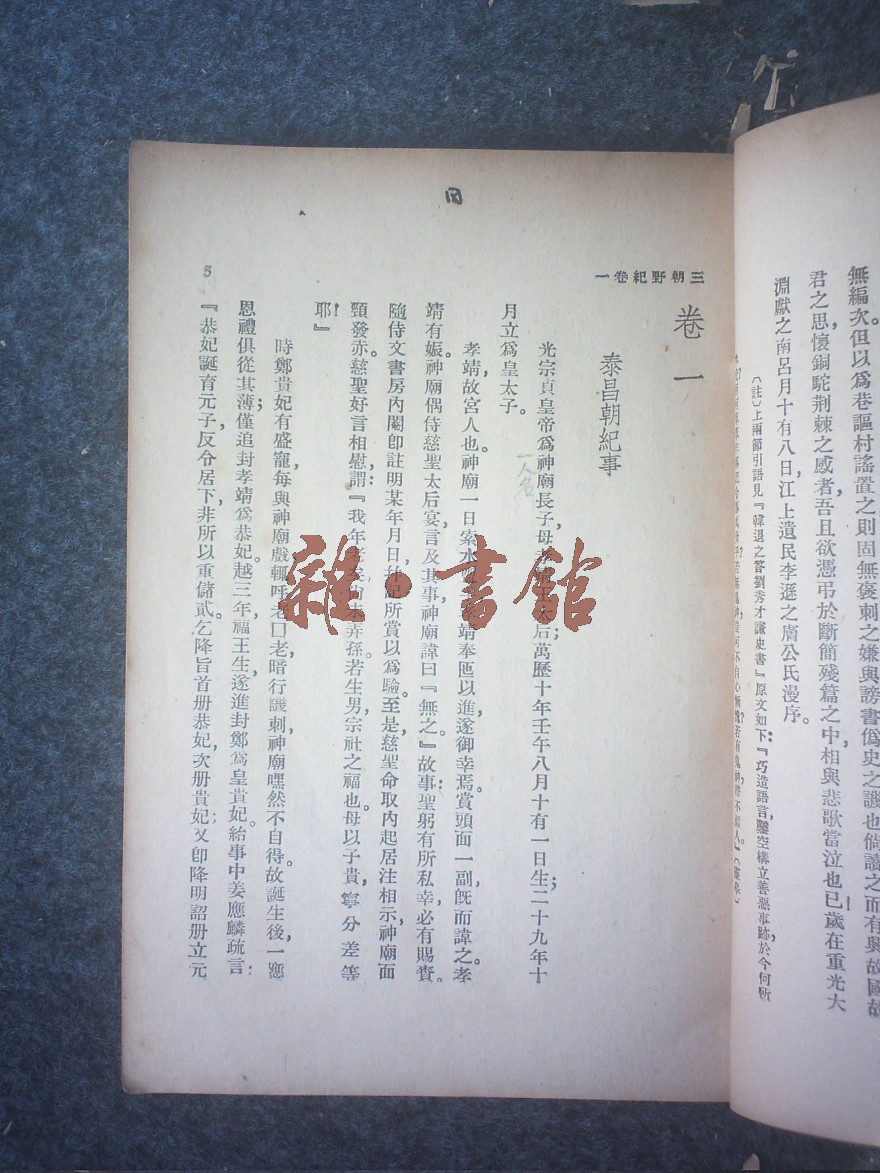 無編次但以爲巷謳村謠置之則固無褒刺之嫌與謗書僞史之譏也倘讀之而有興故國故
君之思懷銅駝荆棘之感者吾且欲憑弔於斷簡殘篇之中相與悲歌當泣也已歲在重光大
淵獻之南呂月十有八日江上遺民李遜之膚公氏漫序。
(註)上兩節引語見『韓退之答劉秀才諫史書』原文如下:『巧造語言,鑿空構立善惡事跡於今何所
三朝野紀卷一
卷一
泰昌朝紀事
光宗貞皇帝爲神廟長子母孝 太后萬歷十年壬午八月十有一日生;二十九年十
月立爲皇太子。
一人名
孝靖,故宮人也。神廟一日索水 靖奉匜以進,遂御幸焉。賞頭面一副,旣而諱之。孝
靖有娠,神廟偶侍慈聖太后宴,言及其事,神廟諱曰:『無之。』故事:聖躬有所私幸,必有賜賚。
隨侍文書房內閹卽註明某年月日,幷記所賞以爲驗。至是慈聖命取內起居注相示,神廟面
頸發赤。慈聖好言相慰,謂:『我年老矣, 未弄孫。若生男,宗社之福也。母以子貴,寧分差等
耶!』
時鄭貴妃有盛寵,每與神廟戲,輒呼老 老 暗行譏刺,神廟嘿然不自得。故誕生後,一應
恩禮俱從其薄;僅追封孝靖爲恭妃。越三年,福王生,遂進封鄭爲皇貴妃。給事中姜應麟疏言:
『恭妃誕育元子,反令居下,非所以重儲貳。乞降旨首册恭妃,次册貴妃;又卽降明詔册立元
5
雜·書館